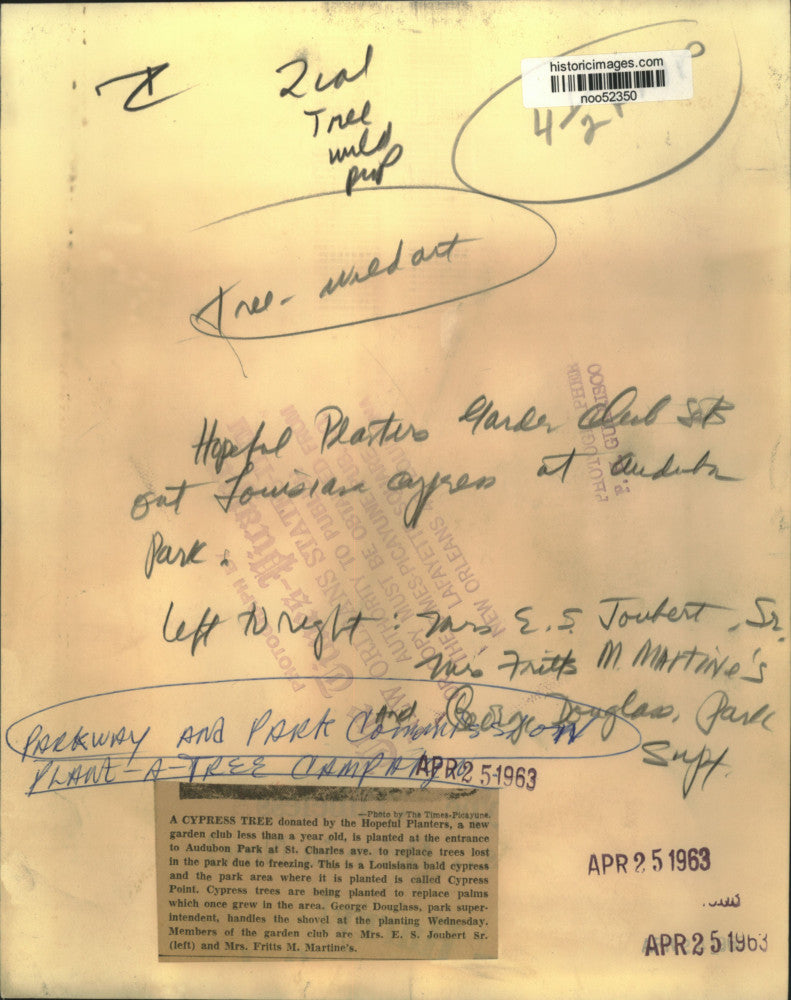 historicimages.com
noo52350
2 col
Tree
wild
pup
4 1/2
Tree - wild art
Hopeful Planters Garden Club sets
out Louisiana cypress at Audubon
Park.
left to right: Mrs E. S. Joubert, Sr.
Mrs Fritts M. MARTINE'S
and George Douglass, Park
Supt.
PARKWAY AND PARK COMMISSION
PLANT-A-TREE CAMPAIGN
APR 25 1963
—Photo by The Times-Picayune.
A CYPRESS TREE donated by the Hopeful Planters, a new
garden club less than a year old, is planted at the entrance
to Audubon Park at St. Charles ave. to replace trees lost
in the park due to freezing. This is a Louisiana bald cypress
and the park area where it is planted is called Cypress
Point. Cypress trees are being planted to replace palms
which once grew in the area. George Douglass, park super-
intendent, handles the shovel at the planting Wednesday.
Members of the garden club are Mrs. E. S. Joubert Sr.
(left) and Mrs. Fritts M. Martine's.
APR 25 1963
APR 25 1963